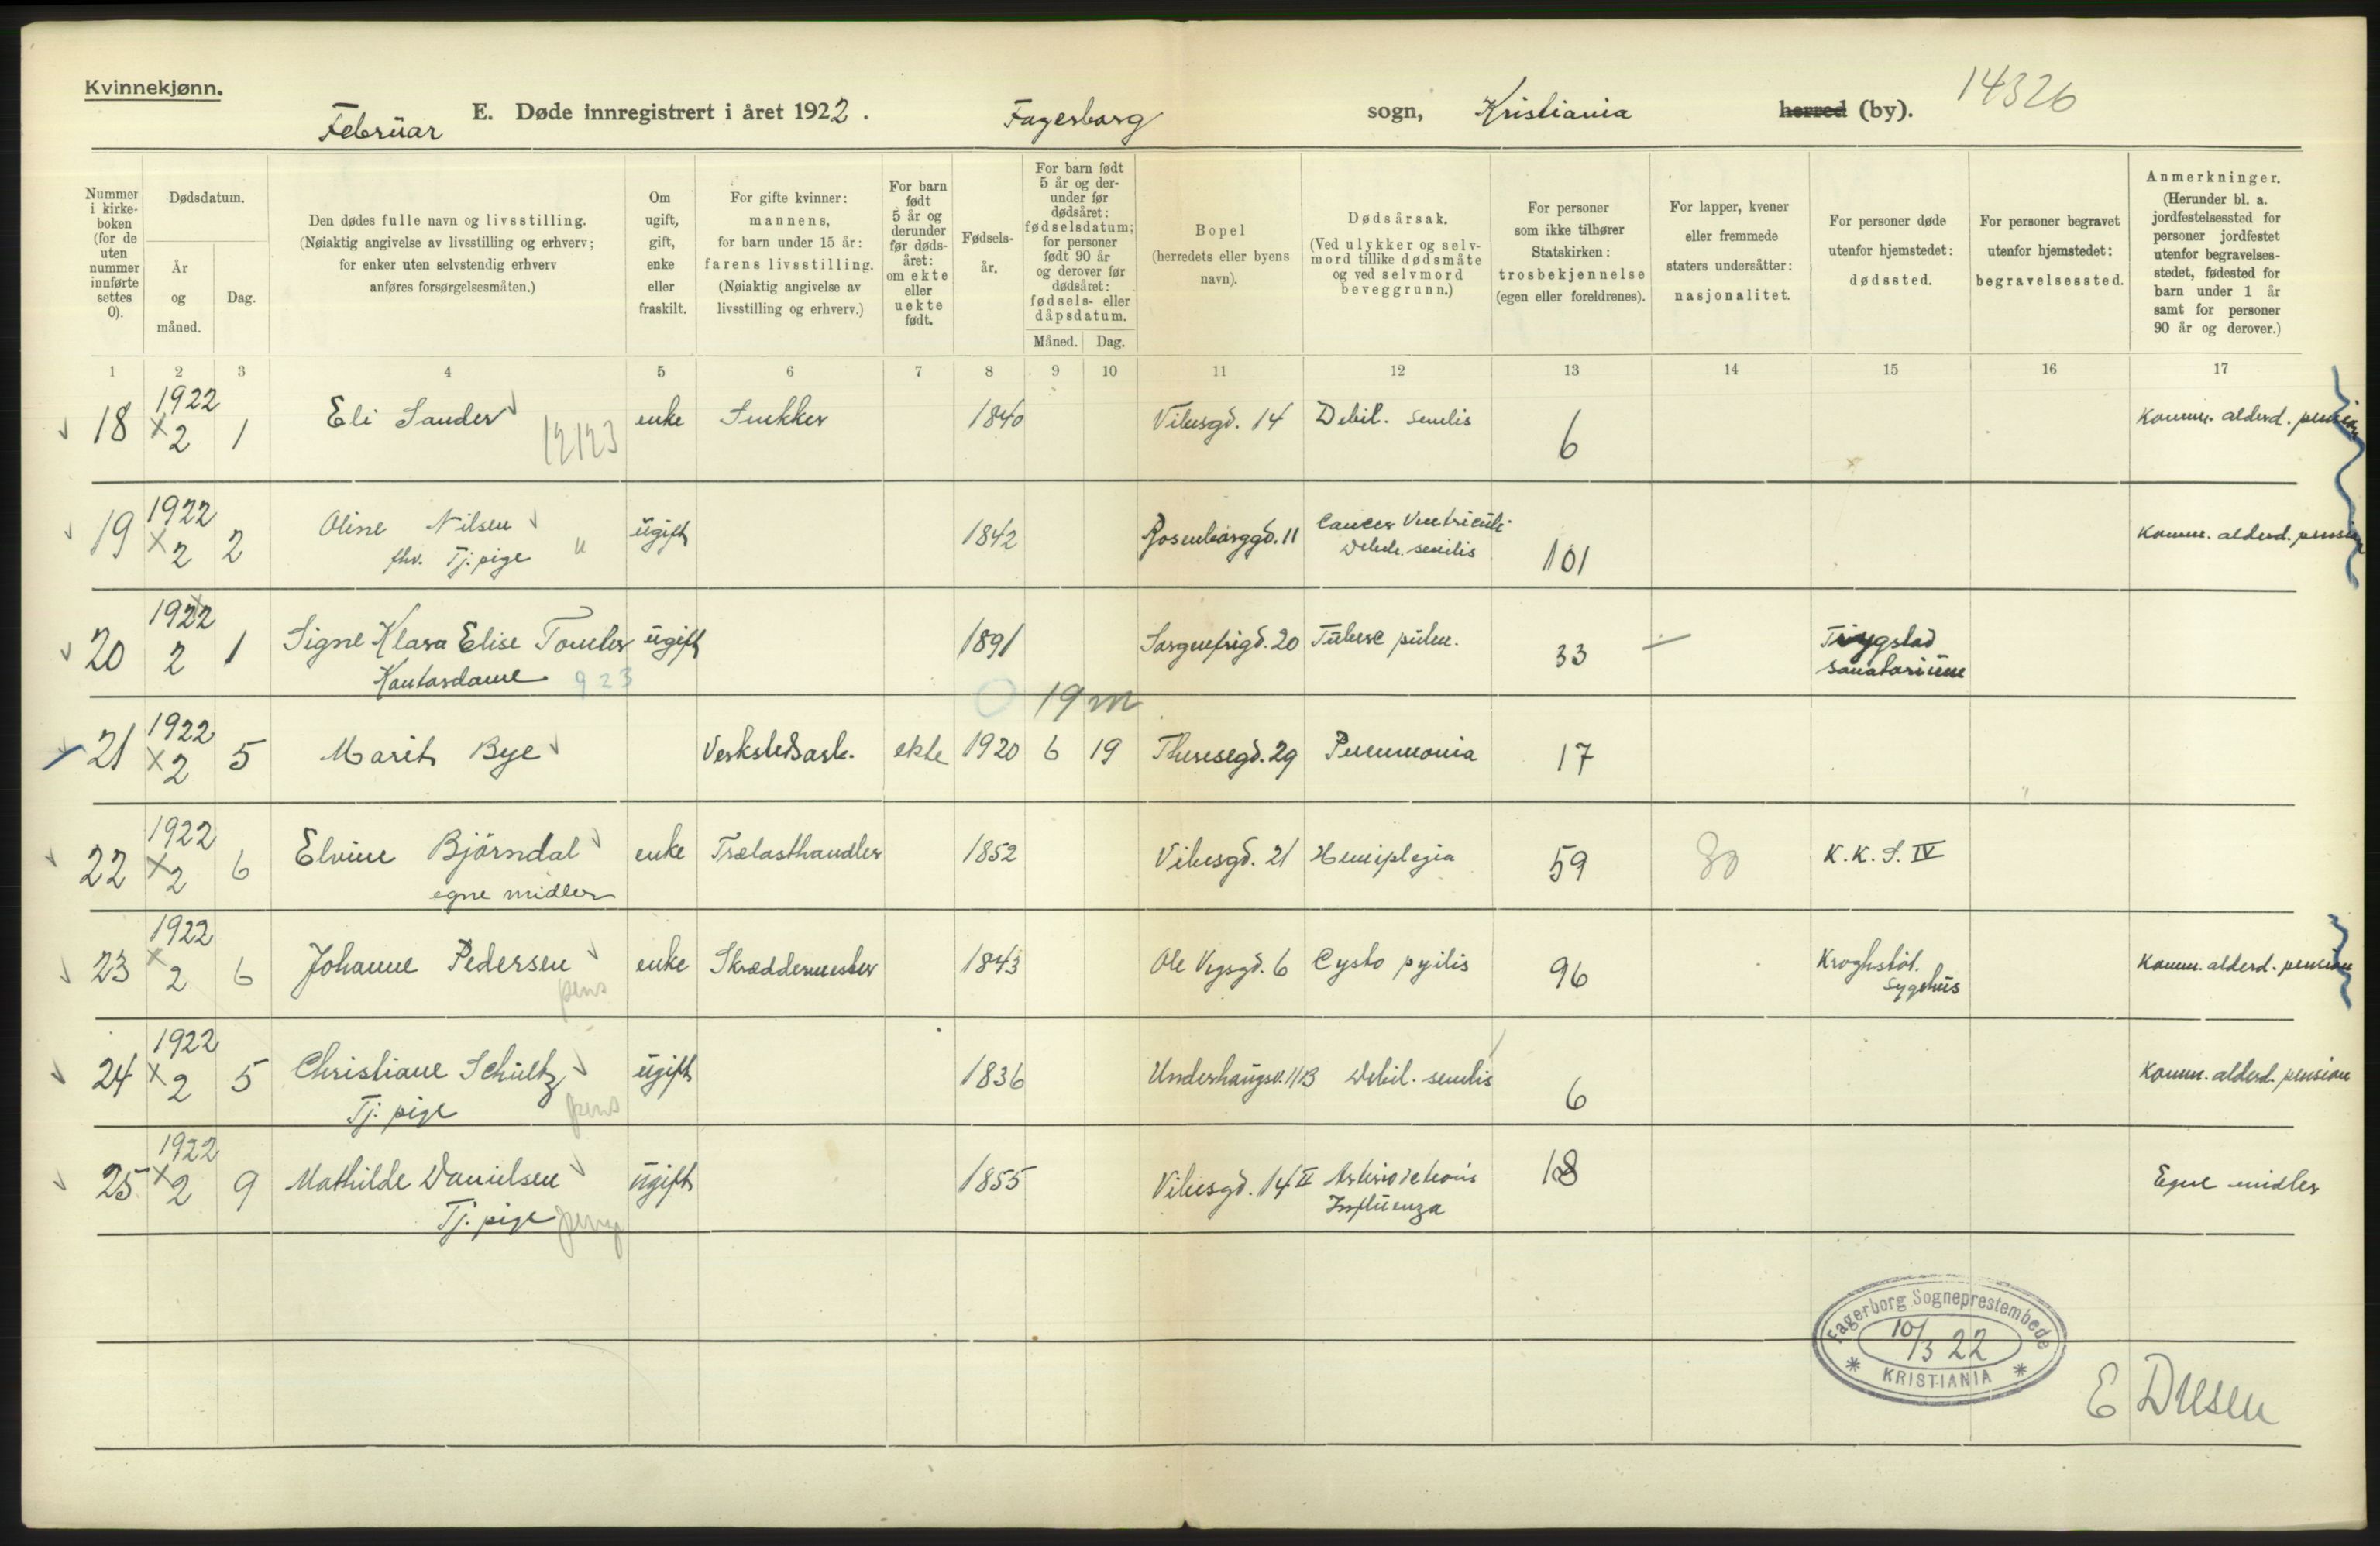 Kvinnekjønn.
Februar
E. Døde innregistrert i året 1922.
Fagerborg sogn, Kristiania herred (by).
14326
Nummer i kirkeboken (for de uten nummer innførte settes 0).
Dødsdatum.
År og måned.
Dag.
Den dødes fulle navn og livsstilling.
(Nøiaktig angivelse av livsstilling og erhverv;
for enker uten selvstendig erhverv
anføres forsørgelsesmåten.)
Om ugift, gift, enke eller fraskilt.
For gifte kvinner: mannens, for barn under 15 år: farens livsstilling. (Nøiaktig angivelse av livsstilling og erhverv.)
For barn født 5 år og derunder før dødsåret: om ekte eller uekte født.
Fødselsår.
For barn født 5 år og derunder før dødsåret: fødselsdatum; for personer født 90 år og derover før dødsåret: fødsels- eller dåpsdatum.
Måned.
Dag.
Bopel (herredets eller byens navn).
Dødsårsak. (Ved ulykker og selvmord tillike dødsmåte og ved selvmord beveggrunn.)
For personer som ikke tilhører Statskirken: trosbekjennelse (egen eller foreldrenes).
For lapper, kvener eller fremmede staters undersåtter: nasjonalitet.
For personer døde utenfor hjemstedet: dødssted.
For personer begravet utenfor hjemstedet: begravelsessted.
Anmerkninger. (Herunder bl. a. jordfestelsessted for personer jordfestet utenfor begravelsesstedet, fødested for barn under 1 år samt for personer 90 år og derover.)
1 2 3 4 5 6 7 8 9 10 11 12 13 14 15 16 17
18 1922 x 2 1 Eli Sander 12123 enke Snekker 1840 Vibesgd. 14 Debil. senilis 6 Komm. alderd. pension
19 1922 x 2 2 Oline Nilsen ugift 1842 Rosenborggd. 11 Cancer Ventriculi 101 Komm. alderd. pension
fhv. Tj. pige Debil. senilis
20 1922 2 1 Signe Klara Elise Tomler ugift 1891 Sorgenfrigd. 20 Tuberc pulm. 33 — Trygstad
Kontordame 923 sanatorium
19 m
21 1922 x 2 5 Marit Bye Verkstedsarb. ekte 1920 6 19 Theresegd. 29 Pneumonia 17
22 1922 x 2 6 Elvine Björndal enke Trælasthandler 1852 Vibesgd. 21 Hemiplegia 59 30 K.K.S. IV
egne midler
23 1922 x 2 6 Johanne Pedersen enke Skræddermester 1843 Ole Vigsgd. 6 Cysto pyitis 96 Kroghstöt. Komm. alderd. pension
pens Sygehus
24 1922 x 2 5 Christiane Schultz ugift 1836 Underhaugsv. 11B Debil. senilis 6 Komm. alderd. pension
Tj. pige pens
25 1922 x 2 9 Mathilde Danielsen ugift 1855 Vibesgd. 14 II 18 Egne midler
Tj. pige Influenza
Fagerborg Sogneprestembede
10/3 22
* KRISTIANIA *